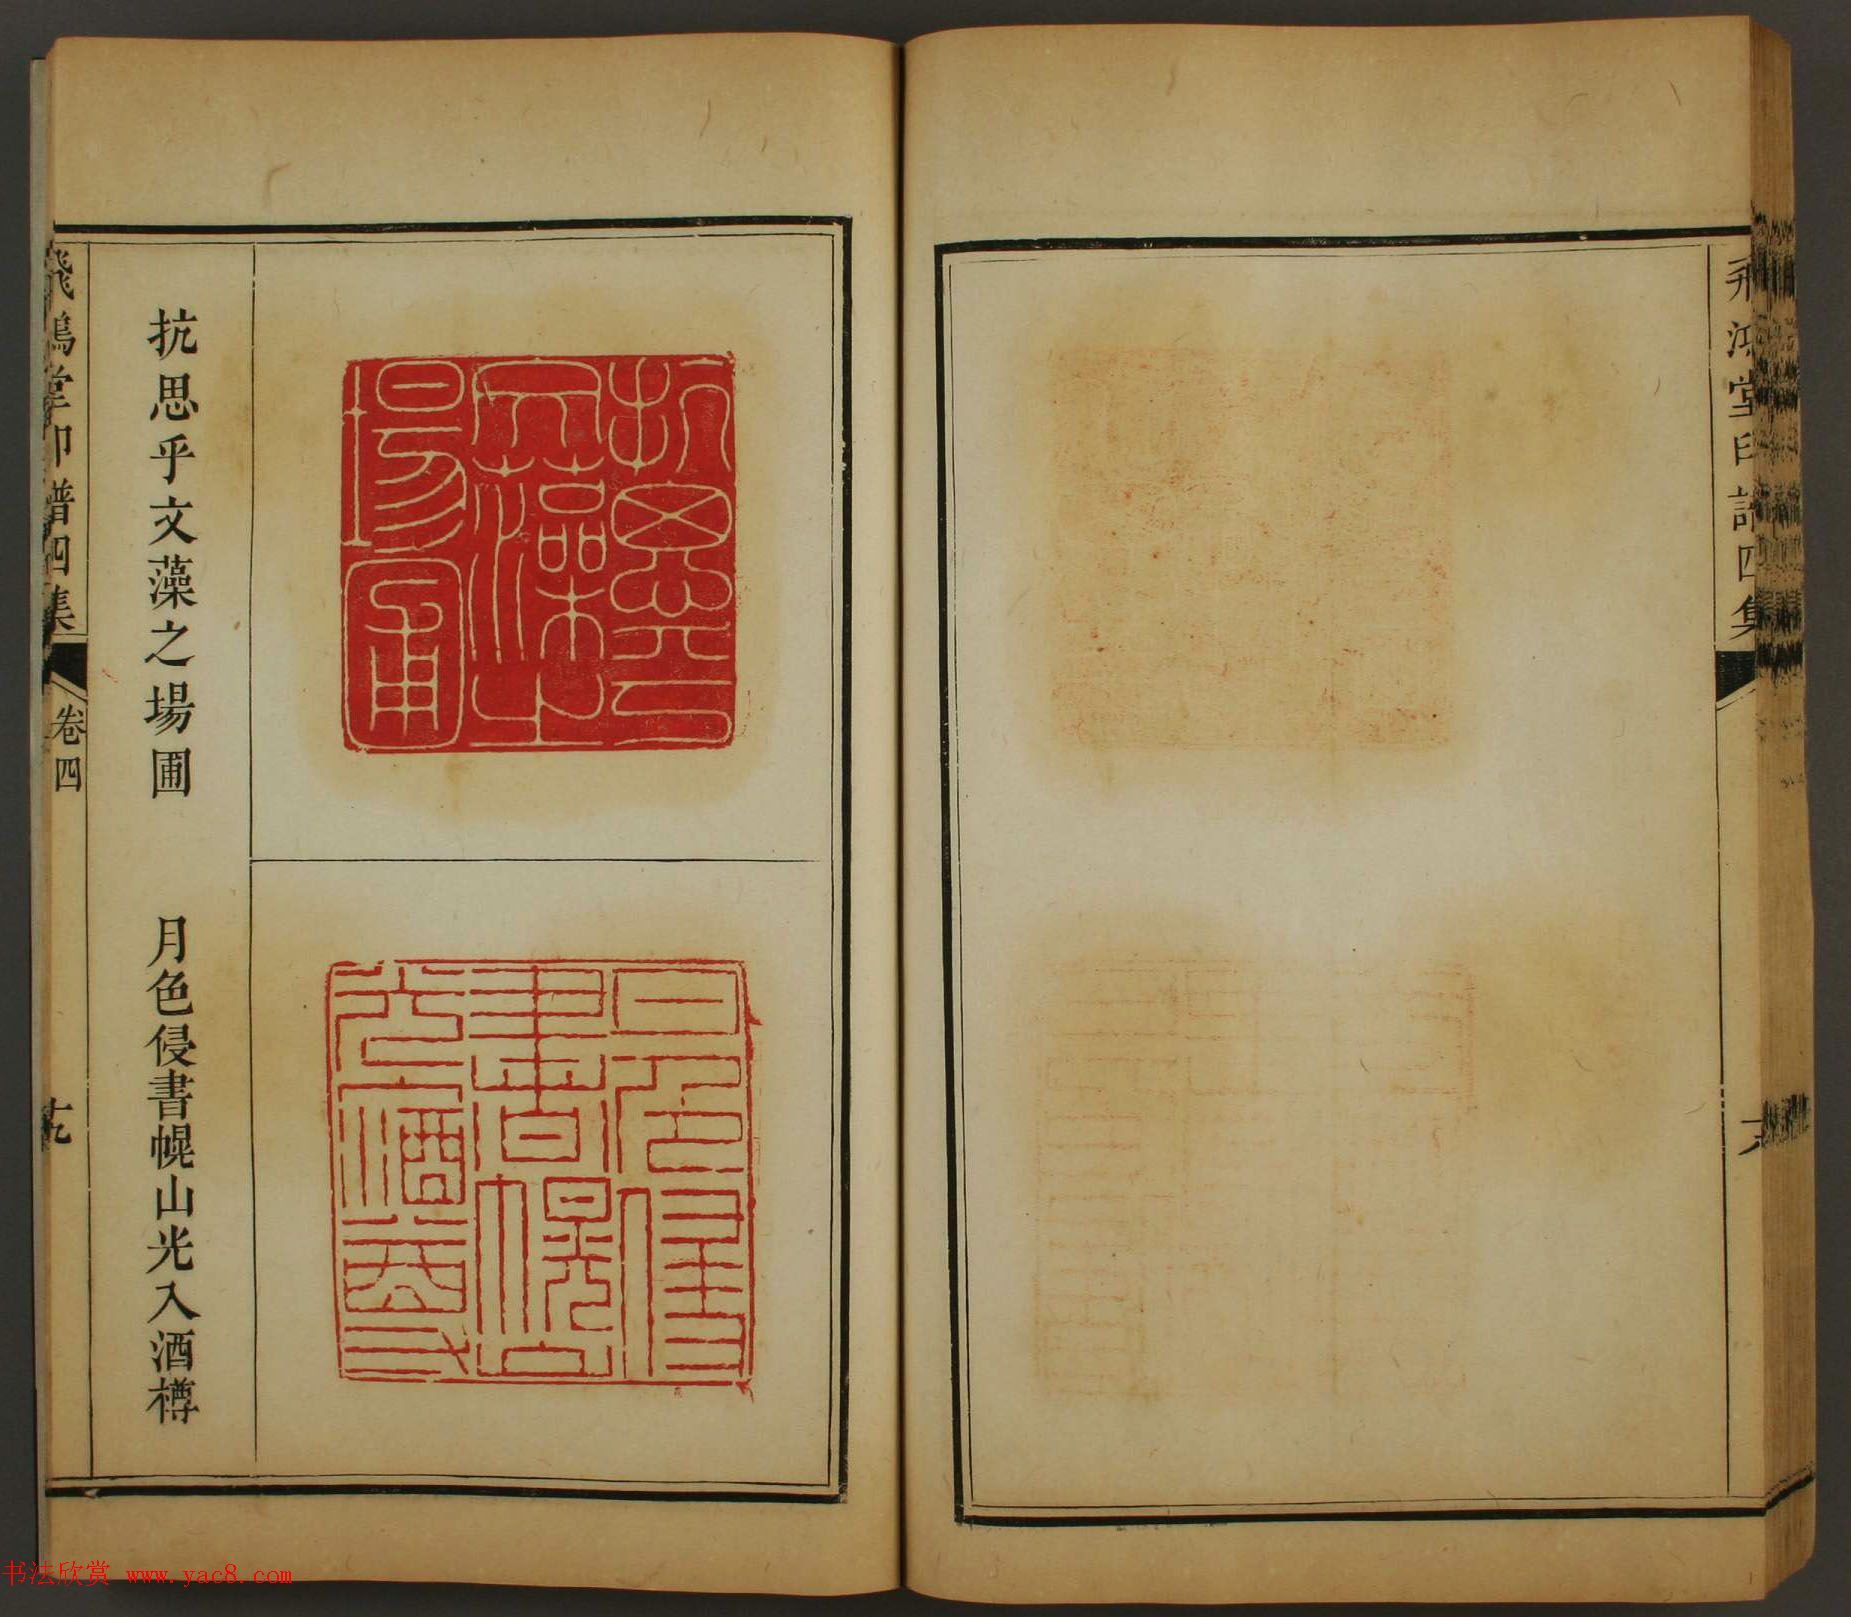 飛鴻堂印譜四集
抗思乎文藻之場圃
月色侵書幌山光入酒樽
飛鴻堂印譜四集
卷四
书法欣赏 www.yac8.com